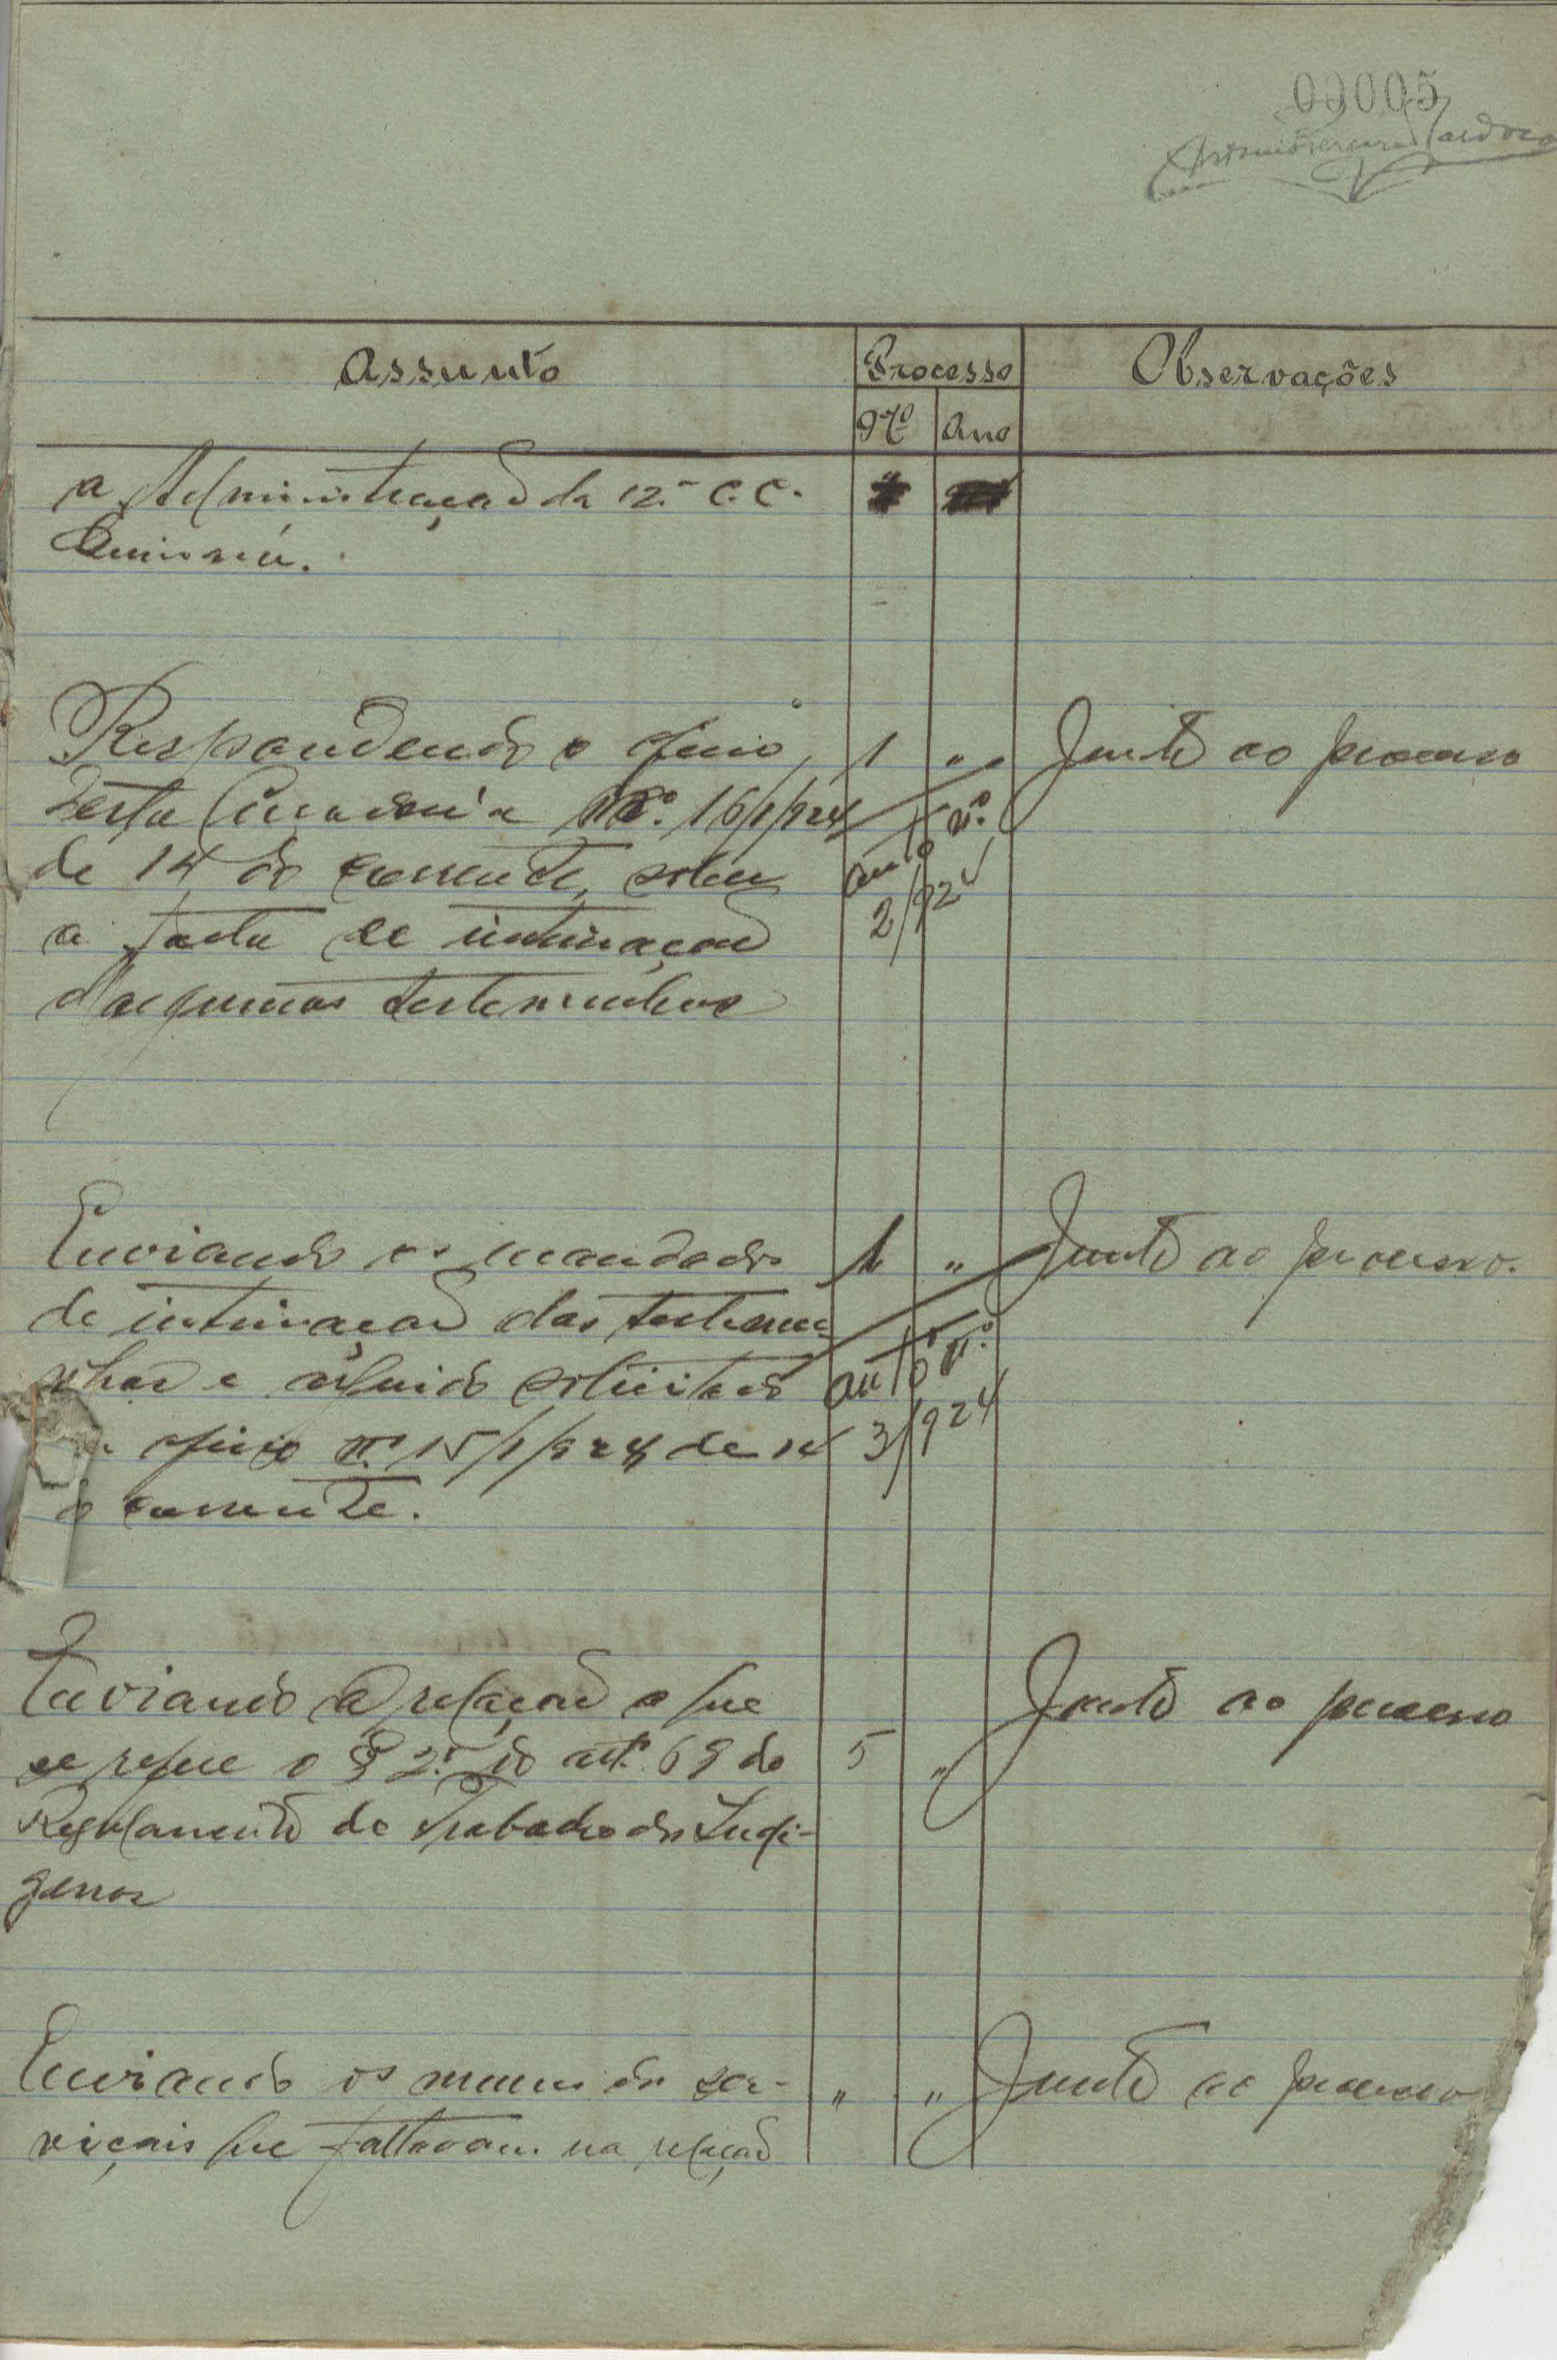 00005
Assunto Processo Observações
Nº Ano
a Administração da 12.ª C. C.
Respondendo o oficio 1 " Junto ao processo
desta Curadoria Nº. 16/1/924 Auto nº.
de 14 do corrente, sobre 2/924
a falta de intimação
d'algumas testemunhas
Enviando os mandados 1 " Junto ao processo.
de intimação das testemu=
nhas e arguido solicitado Auto nº.
oficio nº 15/1/924 de 14 3/924
do corrente.
Enviando a relação a que Junto ao processo
se refere o § 2.º do artº. 69 do 5 "
Regulamento do Trabalho dos Indi-
genas
Enviando os nomes dos ser- " " Junto ao processo
viçais que faltavam na relação